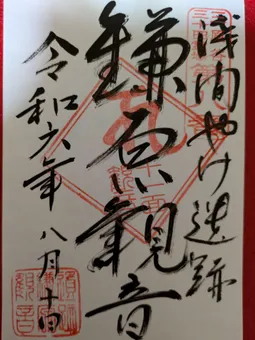 浅間やけ遺跡
鎌原観音
令和六年 八月十日